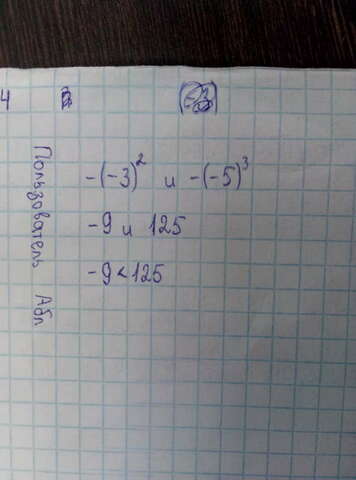 4
-(-3)² и -(-5)³
-9 и 125
-9<125
Пользователь Абл